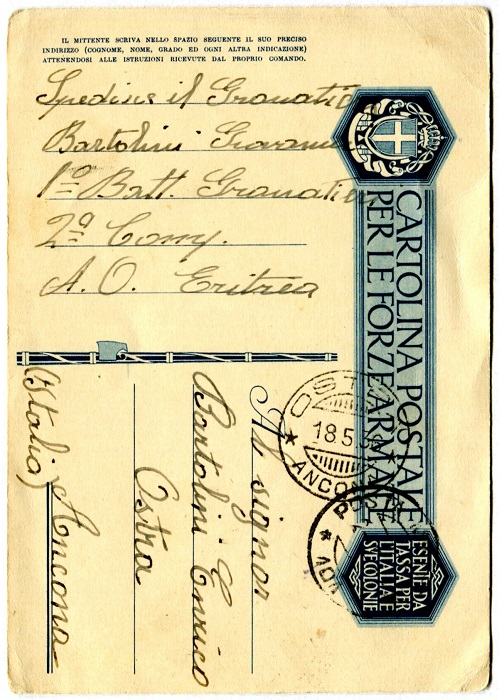 IL MITTENTE SCRIVA NELLO SPAZIO SEGUENTE IL SUO PRECISO
INDIRIZZO (COGNOME, NOME, GRADO ED OGNI ALTRA INDICAZIONE)
ATTENENDOSI ALLE ISTRUZIONI RICEVUTE DAL PROPRIO COMANDO.
Spedisce il Granatiere
Bartolini Giovanni
1º Batt. Granatieri
2ª Comp.
A. O. Eritrea
CARTOLINA POSTALE
PER LE FORZE ARMATE
ESENTE DA
TASSA PER
L'ITALIA E
SVE COLONIE
Al signor
Bartolini Enrico
Ostra
Ancona
(Italia)
OSTRA
18.5.
ANCONA